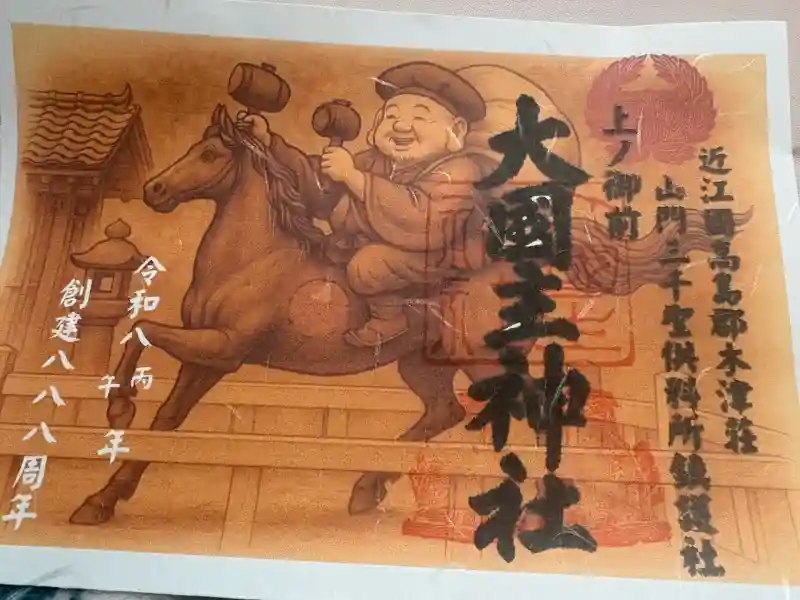 近江國高島郡木津莊
山門三千聖供料所鎮護社
上ノ御前
大國主神社
令和八丙午年
創建八八八周年